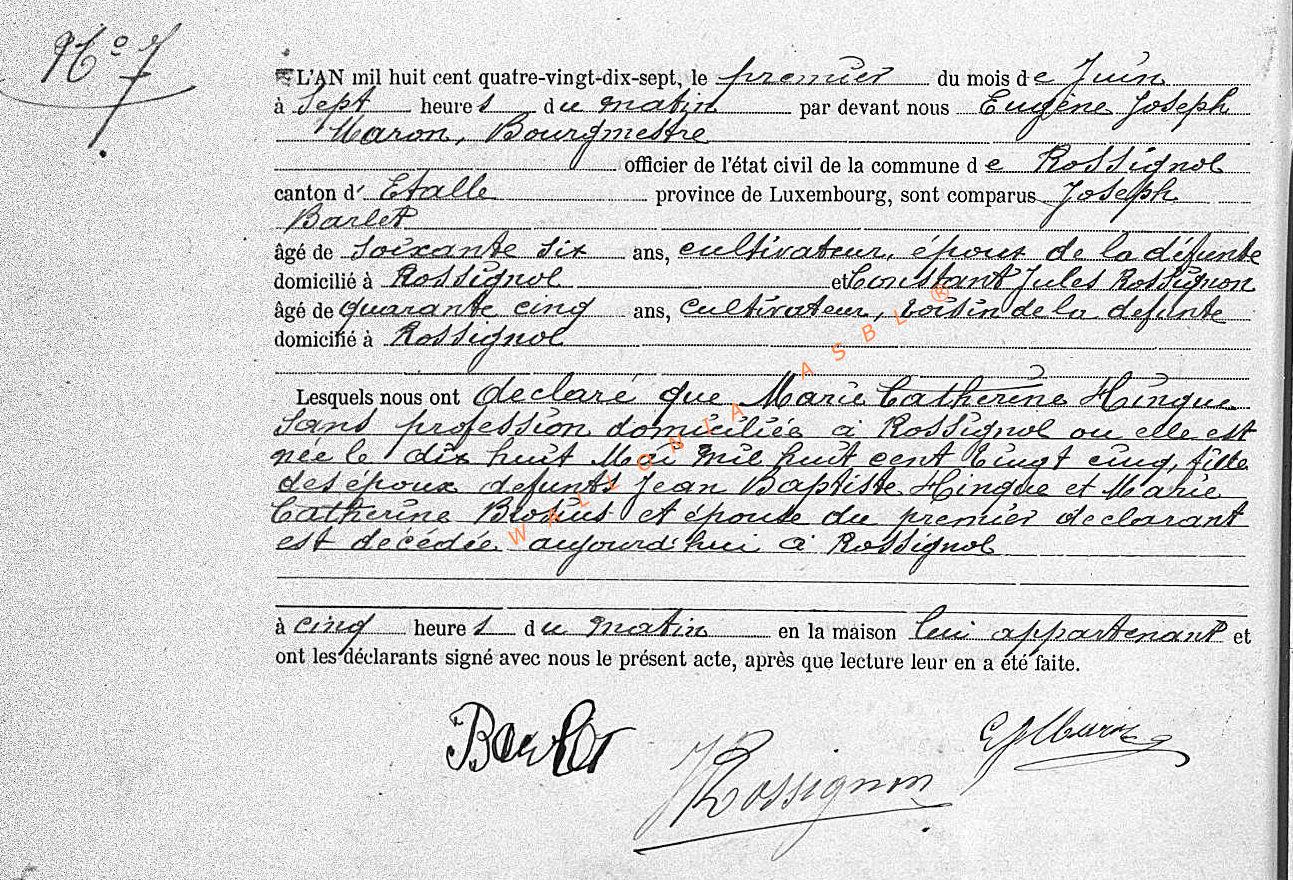 No 7
L'AN mil huit cent quatre-vingt-dix-sept, le premier du mois de Juin
à Sept heures du matin par devant nous Eugène Joseph
Maron, Bourgmestre
officier de l'état civil de la commune de Rossignol
canton d' Etalle province de Luxembourg, sont comparus Joseph
Barlet
âgé de soixante six ans, cultivateur, époux de la défunte
domicilié à Rossignol et Constant Jules Rossignon
âgé de quarante cinq ans, cultivateur, voisin de la defunte
domicilié à Rossignol
Lesquels nous ont declaré que Marie Catherine Hingue
sans profession domiciliée à Rossignol ou elle est
née le dix huit Mai mil huit cent vingt cinq, fille
des époux defunts Jean Baptiste Hingue et Marie
Catherine Brosius et épouse du premier declarant
est decédée aujourd'hui à Rossignol
à cinq heures du matin en la maison lui appartenant et
ont les déclarants signé avec nous le présent acte, après que lecture leur en a été faite.
Barlet
JRossignon
EJMaron
WALLONIA ASBL ®